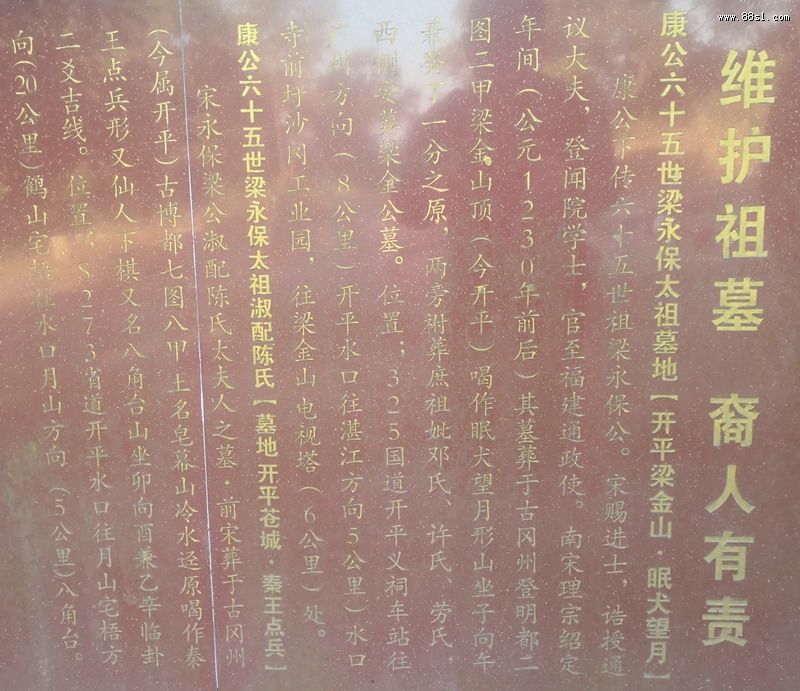 维护祖墓 裔人有责
康公六十五世梁永保太祖墓地【开平梁金山·眠犬望月】
康公下传六十五世祖梁永保公。宋赐进士，诰授通
议大夫，登闻院学士，官至福建通政使。南宋理宗绍定
年间（公元1230年前后）其墓葬于古冈州登明都二
图二甲梁金山顶（今开平）喝作眠犬望月形山坐子向午
兼癸丁一分之原，两旁祔葬庶祖妣邓氏、许氏、劳氏，
西侧安葬梁金公墓。位置；325国道开平义祠车站往
广州方向（8公里）开平水口往湛江方向5公里）水口
寺前圩沙冈工业园，往梁金山电视塔（6公里）处。
康公六十五世梁永保太祖淑配陈氏【墓地开平苍城·秦王点兵】
宋永保梁公淑配陈氏太夫人之墓·前宋葬于古冈州
（今属开平）古博都七图八甲土名皂幕山冷水迳原喝作秦
王点兵形又仙人下棋又名八角台山坐卯向酉兼乙辛临卦
二爻吉线。位置：S273省道开平水口往月山宅梧方
向（20公里）鹤山宅梧往水口月山方向（5公里）八角台。
www.88sl.com